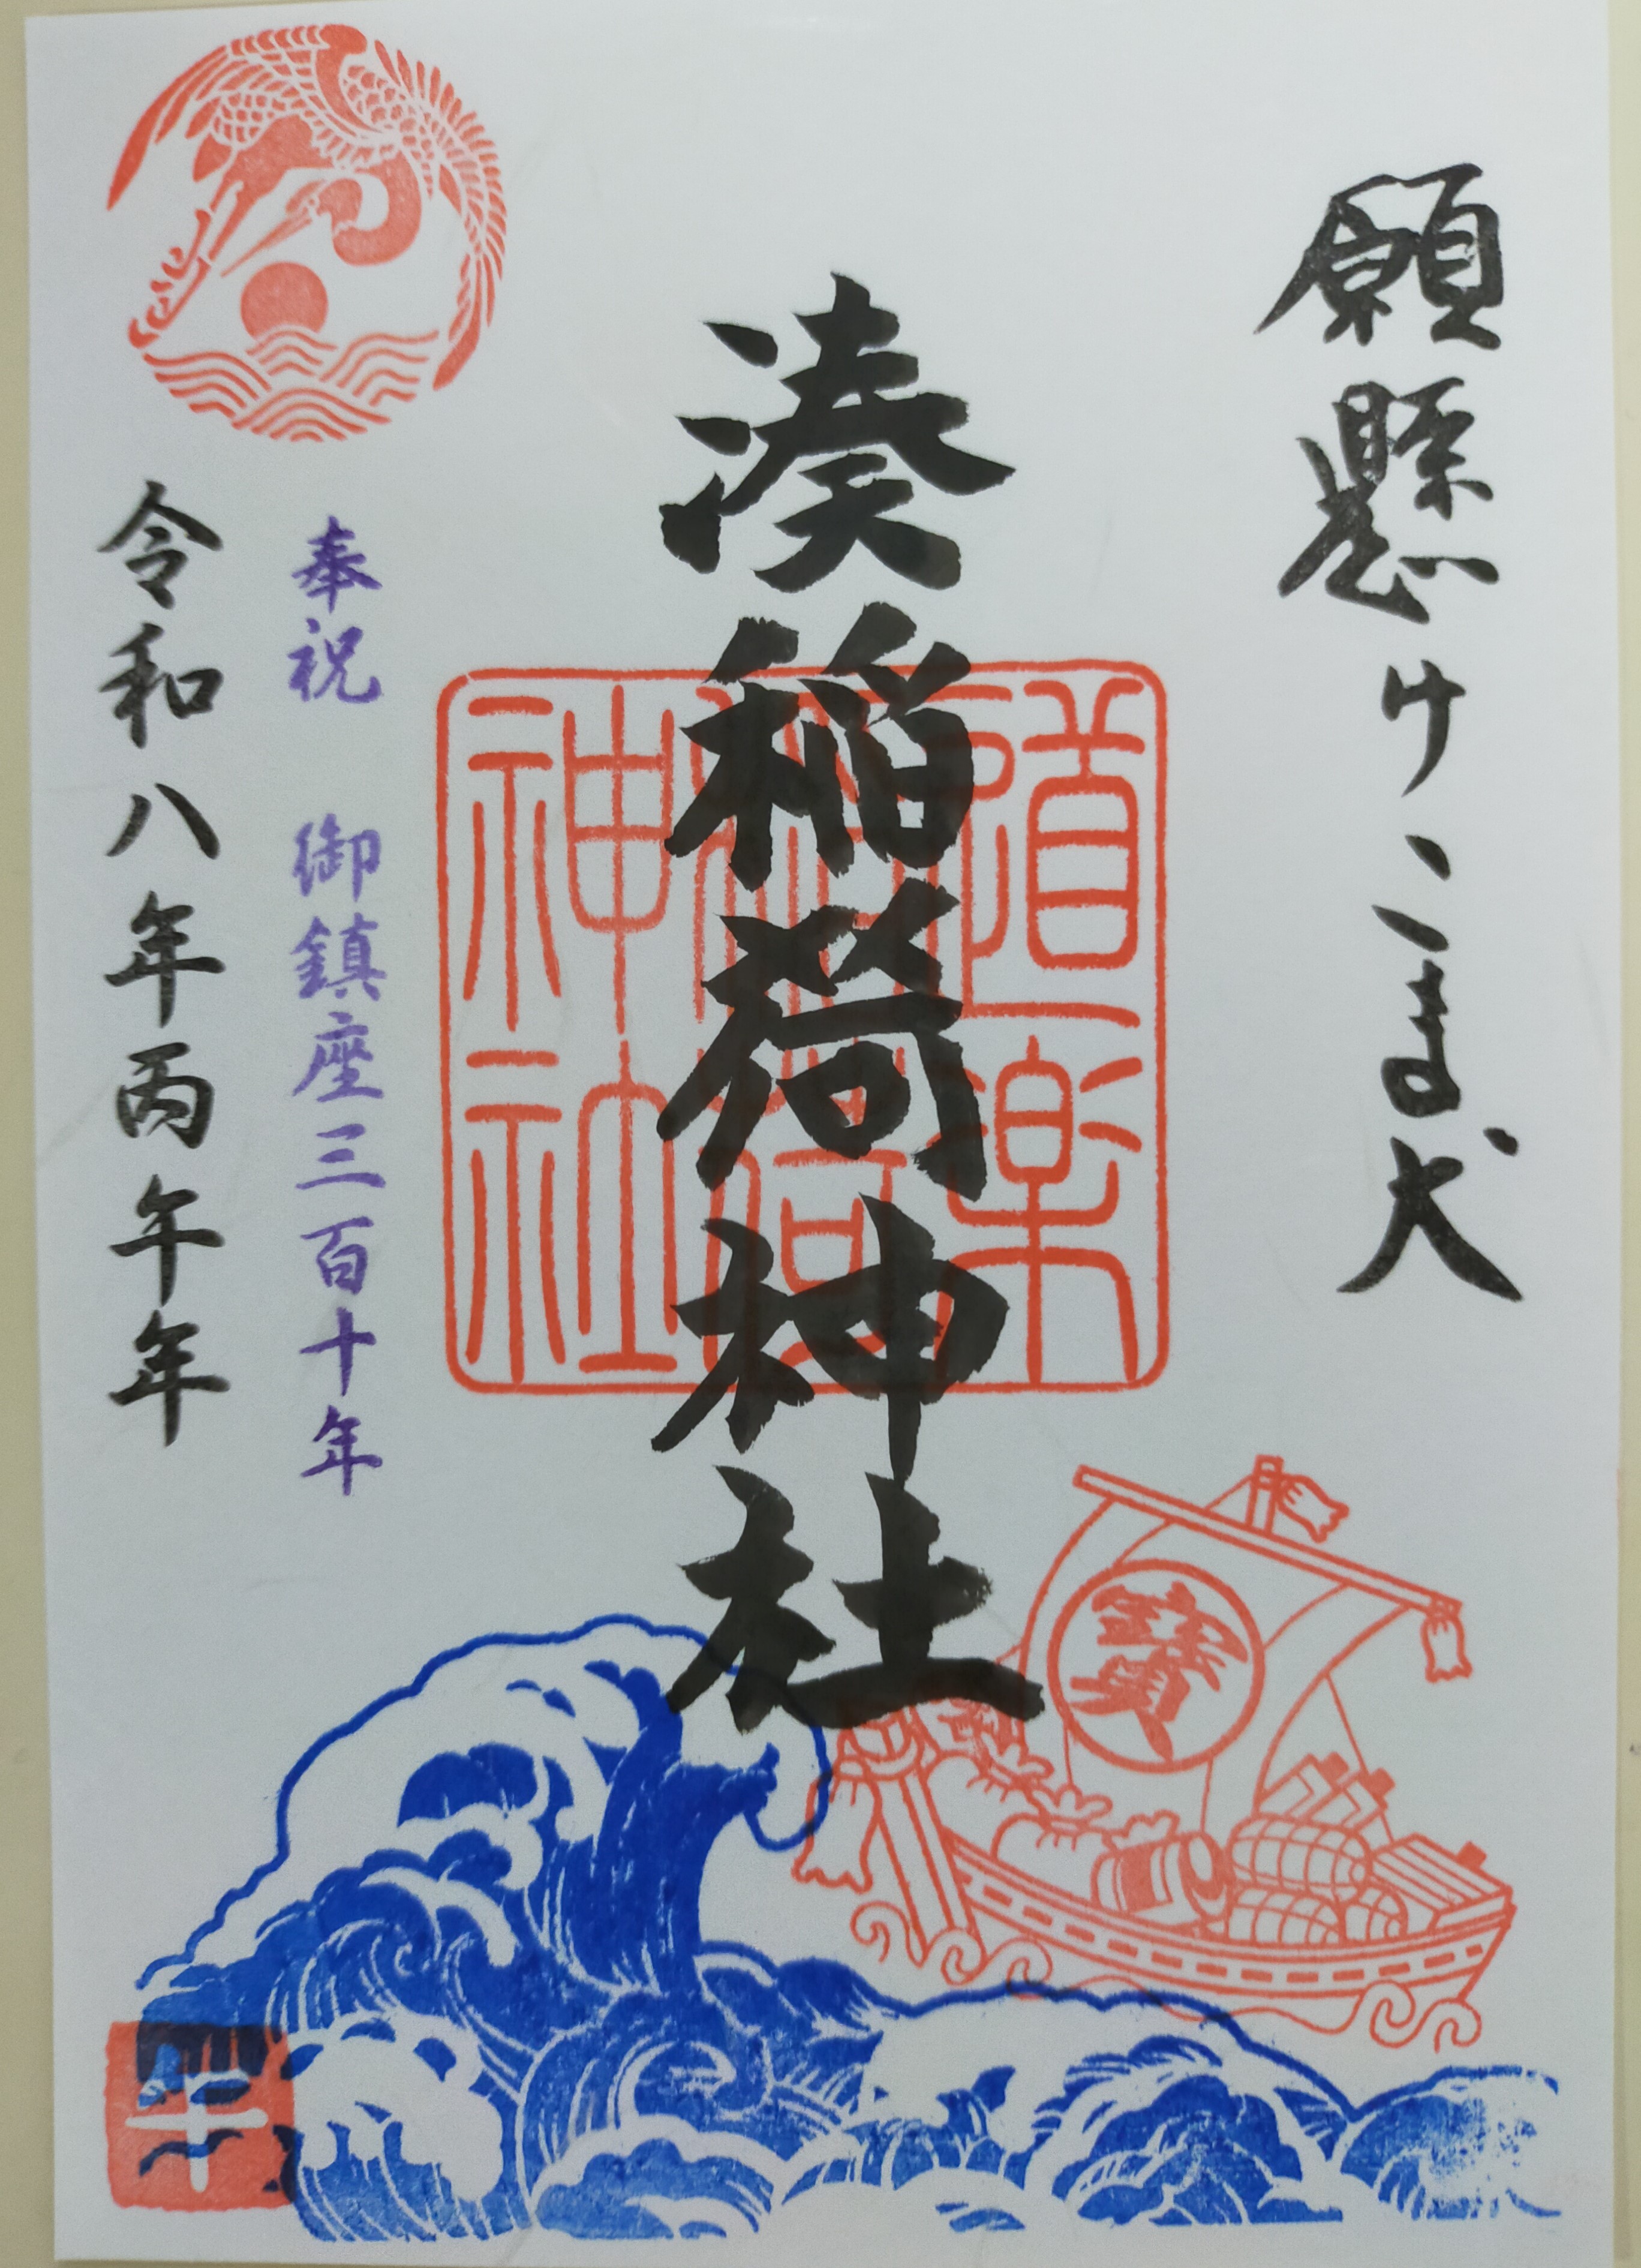 願懸けこま犬
湊稲荷神社
道楽稲荷神社
奉祝 御鎮座三百十年
令和八年丙午年
寶
午